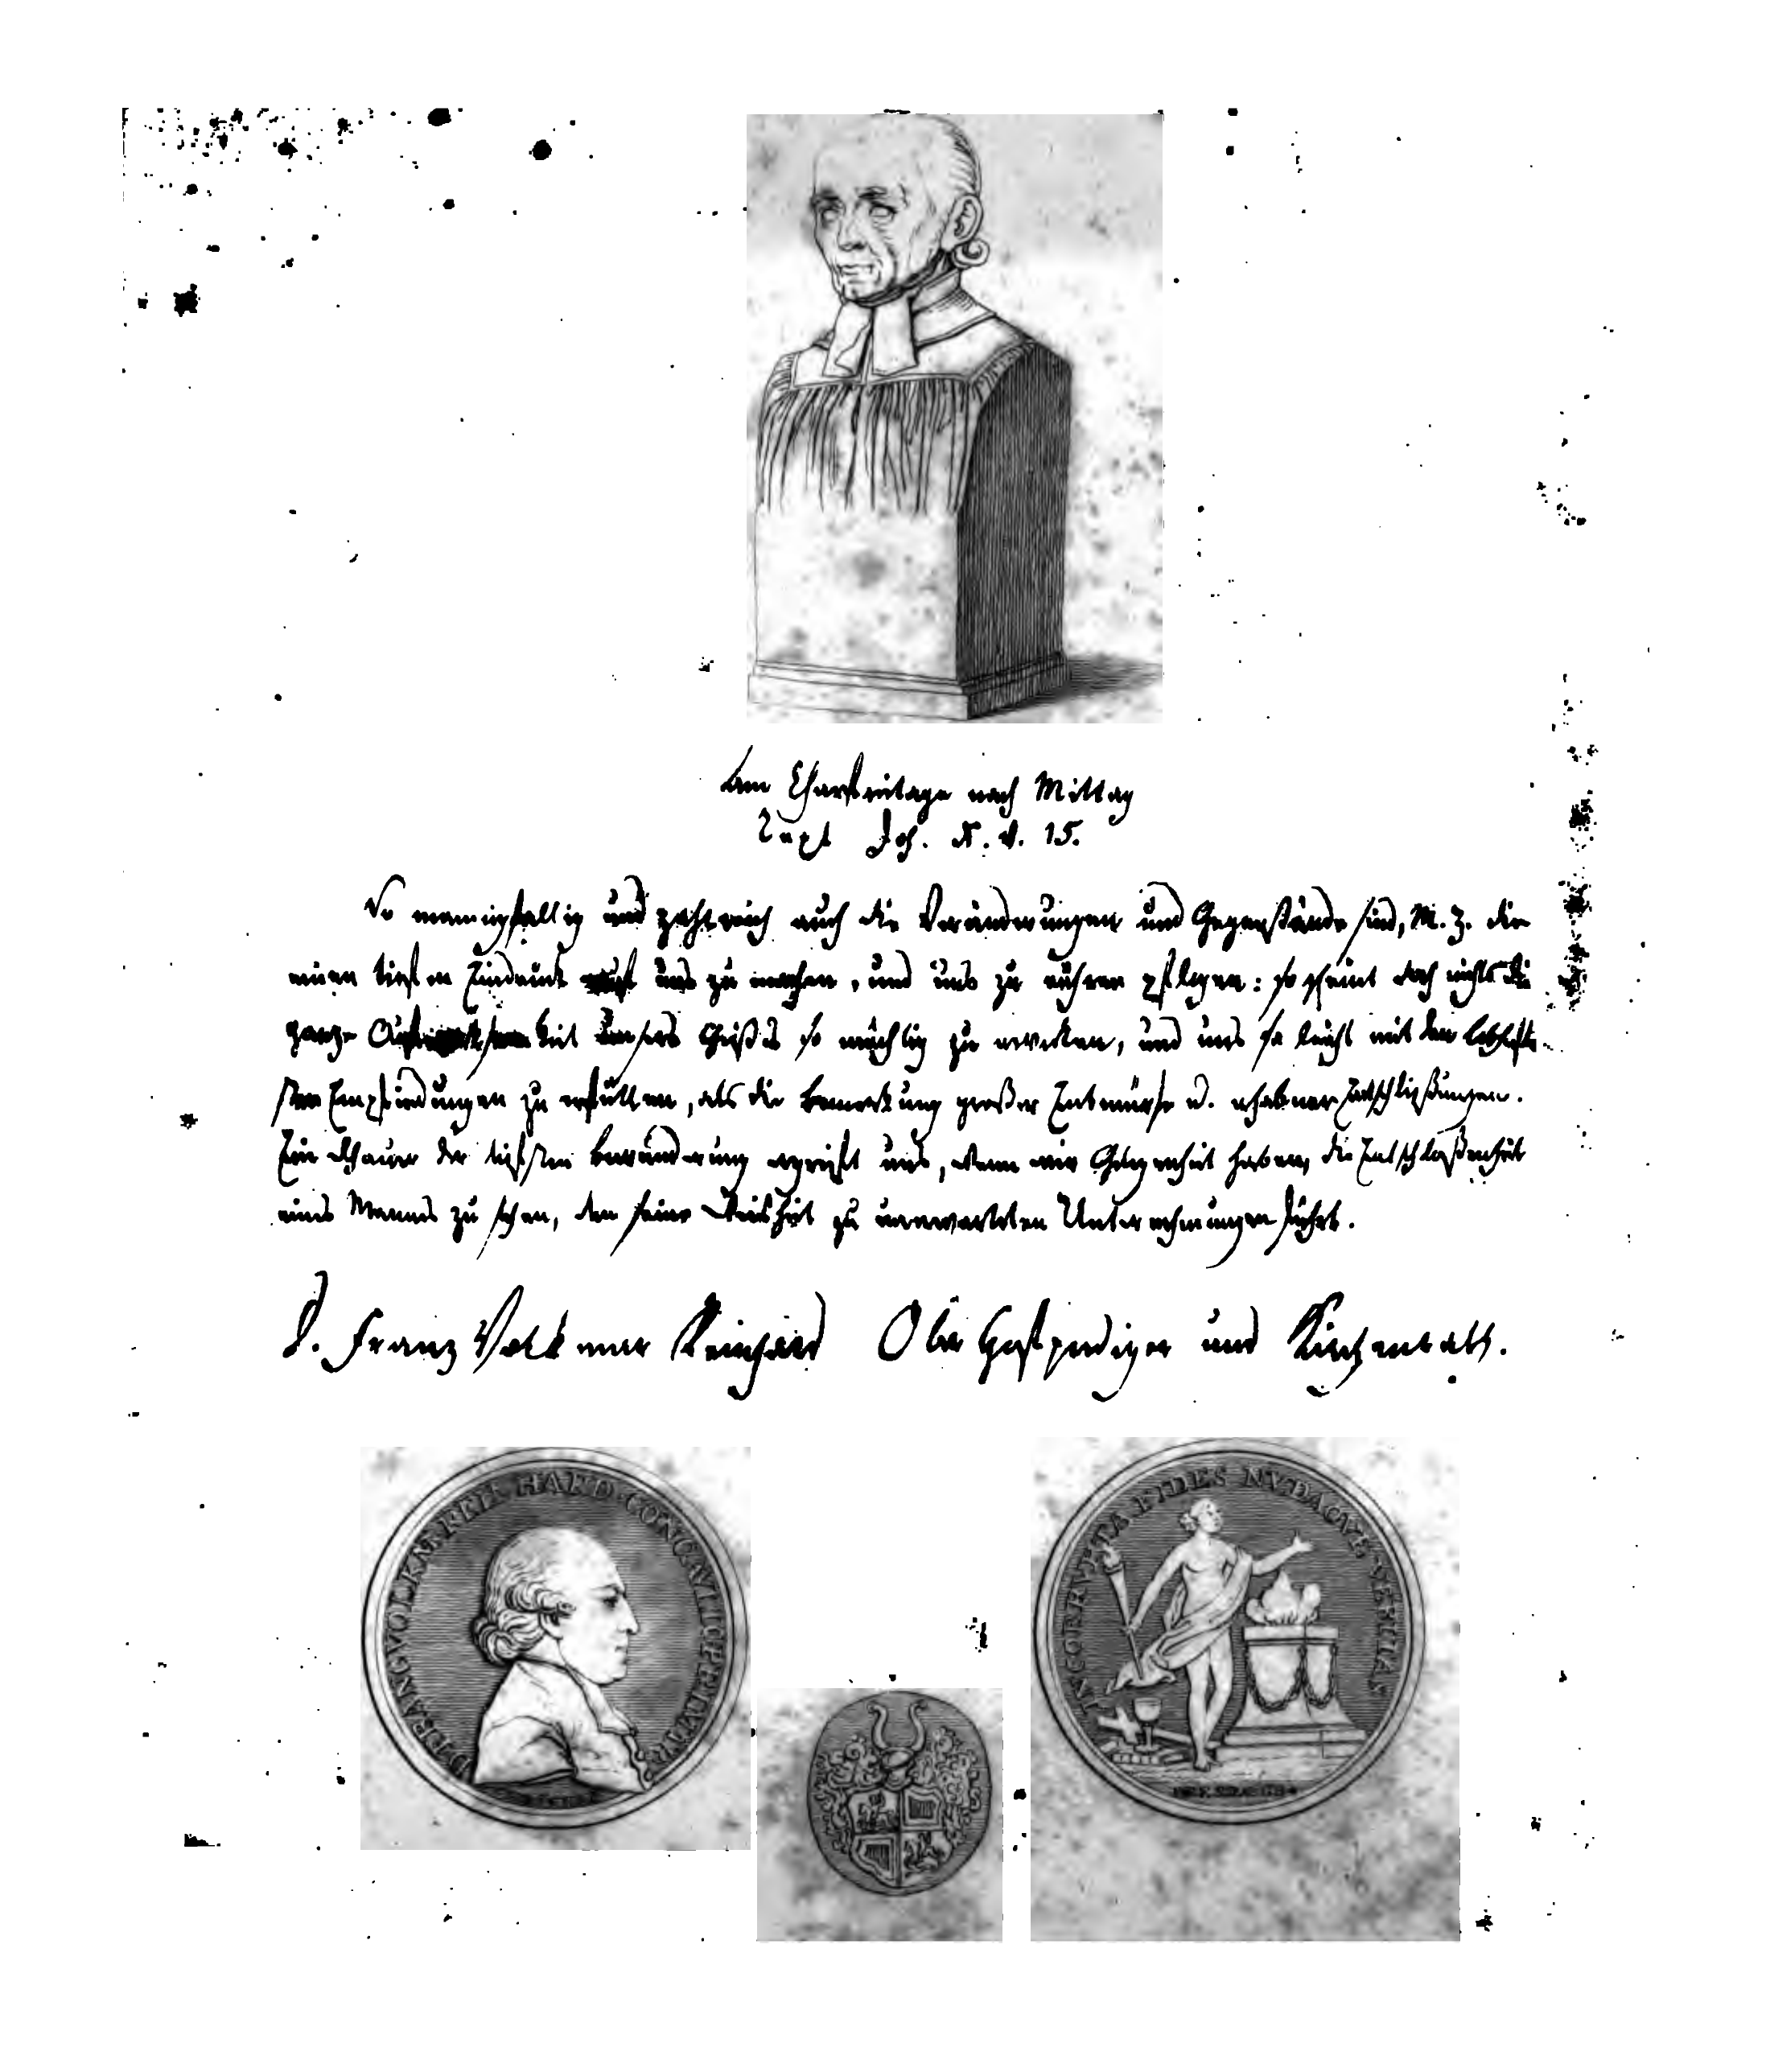 Am Charfreitage nach Mittag
Text Joh. X. v. 15.
So mannigfaltig und zahlreich auch die Veränderungen und Gegenstände sind, M. Z. die
einen tiefen Eindruck auf uns zu machen, und uns zu rühren pflegen: so scheint doch nichts die
ganze Aufmerksamkeit unsers Geistes so mächtig zu erwecken, und uns so leicht mit den lebhafte-
sten Empfindungen zu erfüllen, als die Bemerkung großer Entwürfe u. erhabner Entschließungen.
Ein Schauer der tiefsten Bewunderung ergreift uns, wenn wir Gelegenheit haben, die Entschloßenheit
eines Mannes zu sehen, den seine Weisheit zu unerwarteten Unternehmungen führt.
D. Franz Volkmar Reinhard Oberhofprediger und Kirchenrath.
FRANC VOLKM REIN HARD
INCORRVPTA FIDES NVDAQVE VERITAS